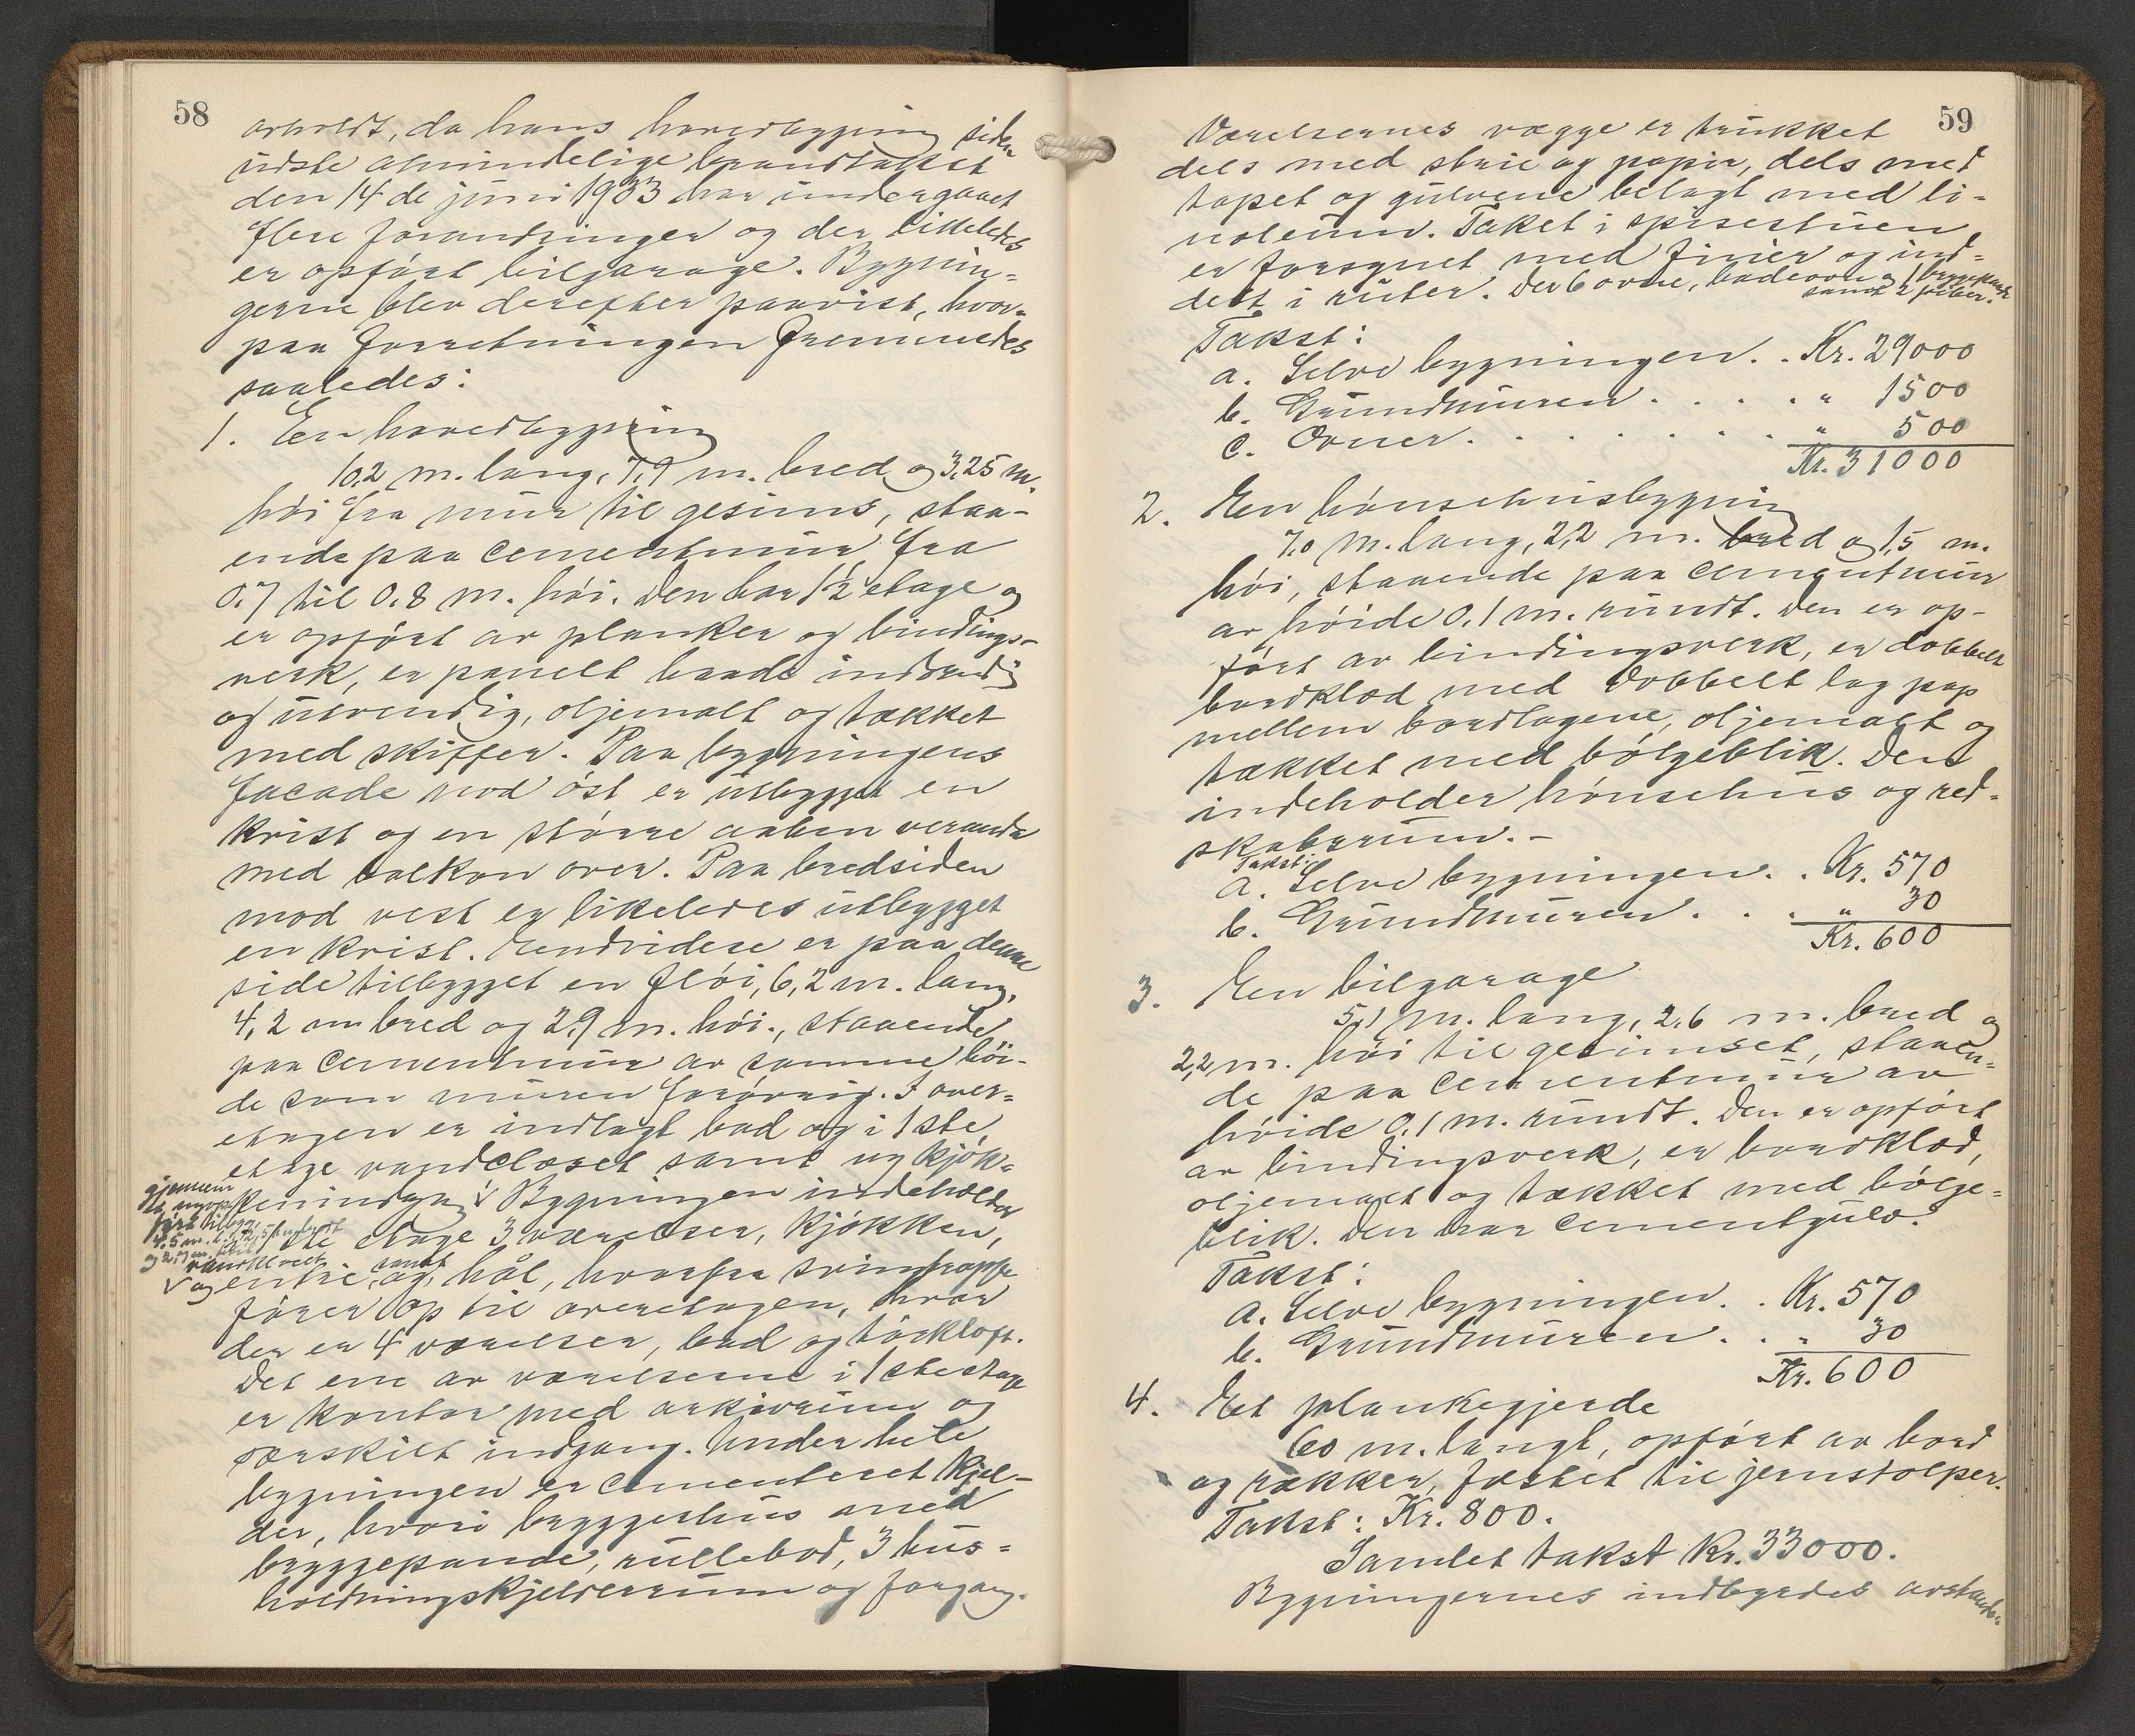 58
avholdt, da hans hovedbygning siden
sidste almindelige brandtakst
den 14de juni 1933 har undergaaet
flere forandringer og der likeledes
er opført bilgarage. Bygnin-
gerne blev derefter paavist, hvor-
paa forretningen fremmedes
saaledes:
1. En hovedbygning
10,2 m. lang, 7,9 m. bred og 3,25 m.
høi fra mur til gesims, staa-
ende paa cementmur fra
0.7 til 0.8 m. høi. Den har 1½ etage og
er opført av planker og bindings-
verk, er panelt baade indvendig
og utvendig, oljemalt og tækket
med skiffer. Paa bygningens
facade mod øst er utbygget en
krist og en større aaben veranda
med balkon over. Paa bredsiden
mod vest er likeledes utbygget
en krist. Endvidere er paa denne
side tilbygget en fløi, 6,2 m. lang,
4,2 m bred og 2,9 m. høi., staaende
paa cementmur av samme høi-
de som muren forøvrig. I over-
etagen er indlagt bad og i 1ste
etage vandclæset samt ny kjøk-
kenindgang √ Bygningen indeholder
gjennem
et nyopført tilbyg,
i 1ste etage 3 værelser, kjøkken,
vandklosett
√ og entre, og samt hål, hvorfra svingtrappe
fører op til overetagen, hvor
der er 4 værelser, bad og tørkloft.
Det ene av værelserne i 1ste etage
er kontor med arkivrum og
særskilt indgang. Under hele
bygningen er cementeret kjel-
der, hvori bryggerhus med
bryggepande, rullebod, 3 hus-
holdningskjelderrum og forgang.
59
Værelsernes vægge er trukket
dels med strie og papir, dels med
tapet og gulvene belagt med li-
noleum. Taket i spisestuen
er forsynet med finier og ind-
delt i ruter. Der 6 ovne, badeovn og 1 bryggepande
samt 2 piber.
Takst:
a. Selve bygningen. . Kr. 29000
b. Grundmuren. . . . . " 1500
c. Ovner. . . . . . . . " 500
Kr. 31000
2. En hønsehusbygning
7,0 m. lang, 2,2 m. bred og 1,5 m.
høi, staaende paa cementmur
av høide 0,1 m. rundt. Den er op-
ført av bindingsverk, er dobbelt
bordklæd med dobbelt lag pap
mellem bordlagene, oljemalt og
tækket med bølgeblik. Den
indeholder hønsehus og red-
skabsrum. -
Takst:
a. Selve bygningen. . Kr. 570
b. Grundmuren. . . " 30
Kr. 600
3. En bilgarage
5,1 m. lang, 2,6 m. bred og
2,2 m. høi til gesimset, staaen-
de paa cementmur av
høide 0,1 m. rundt. Den er opført
av bindingsverk, er bordklæd,
oljemalt og tækket med bølge-
blik. Den har cementgulv.
Takst:
a. Selve bygningen. . Kr. 570
b. Grundmuren. . " 30
Kr. 600
4. Et plankegjerde
60 m. langt, opført av bord
og rækker, fæstet til jernstolper.
Takst: Kr. 800.
Samlet takst Kr. 33000.
Bygningernes indbyrdes avstander